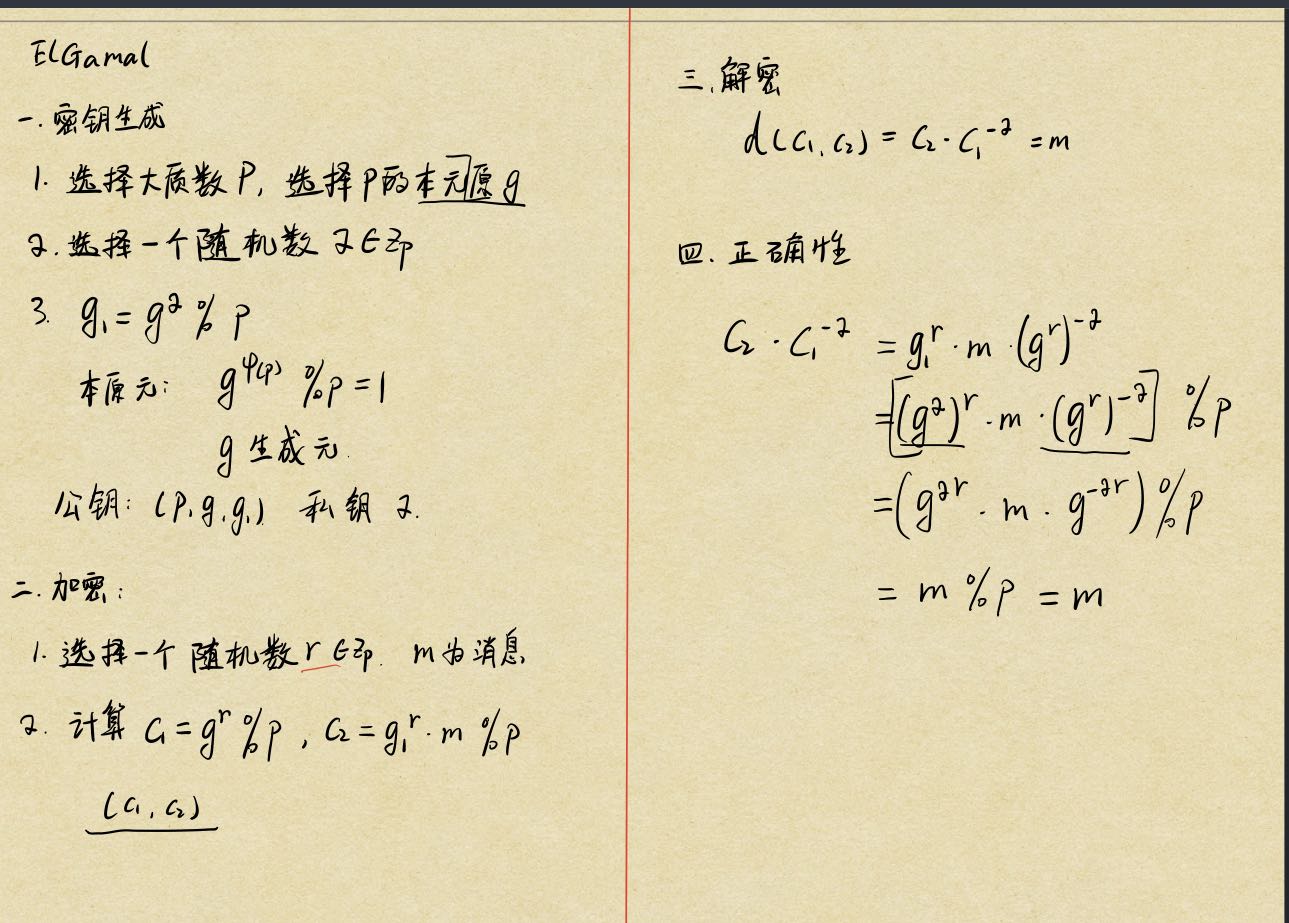 ELGamal
一. 密钥生成
1. 选择大质数 P, 选择 P的本元原 g
2. 选择一个随机数 a∈Zp
3. g₁ = g^a % p
本原元: g^φ(p) % p = 1
g 生成元.
公钥: (P, g, g₁) 私钥 a.
二. 加密:
1. 选择一个随机数 r∈Zp. m为消息
2. 计算 C₁ = g^r % p , C₂ = g₁^r · m % p
(C₁, C₂)
三. 解密
d(C₁, C₂) = C₂ · C₁^-a = m
四. 正确性
C₂ · C₁^-a = g₁^r · m · (g^r)^-a
= [(g^a)^r · m · (g^r)^-a] % p
= (g^ar · m · g^-ar) % p
= m % p = m